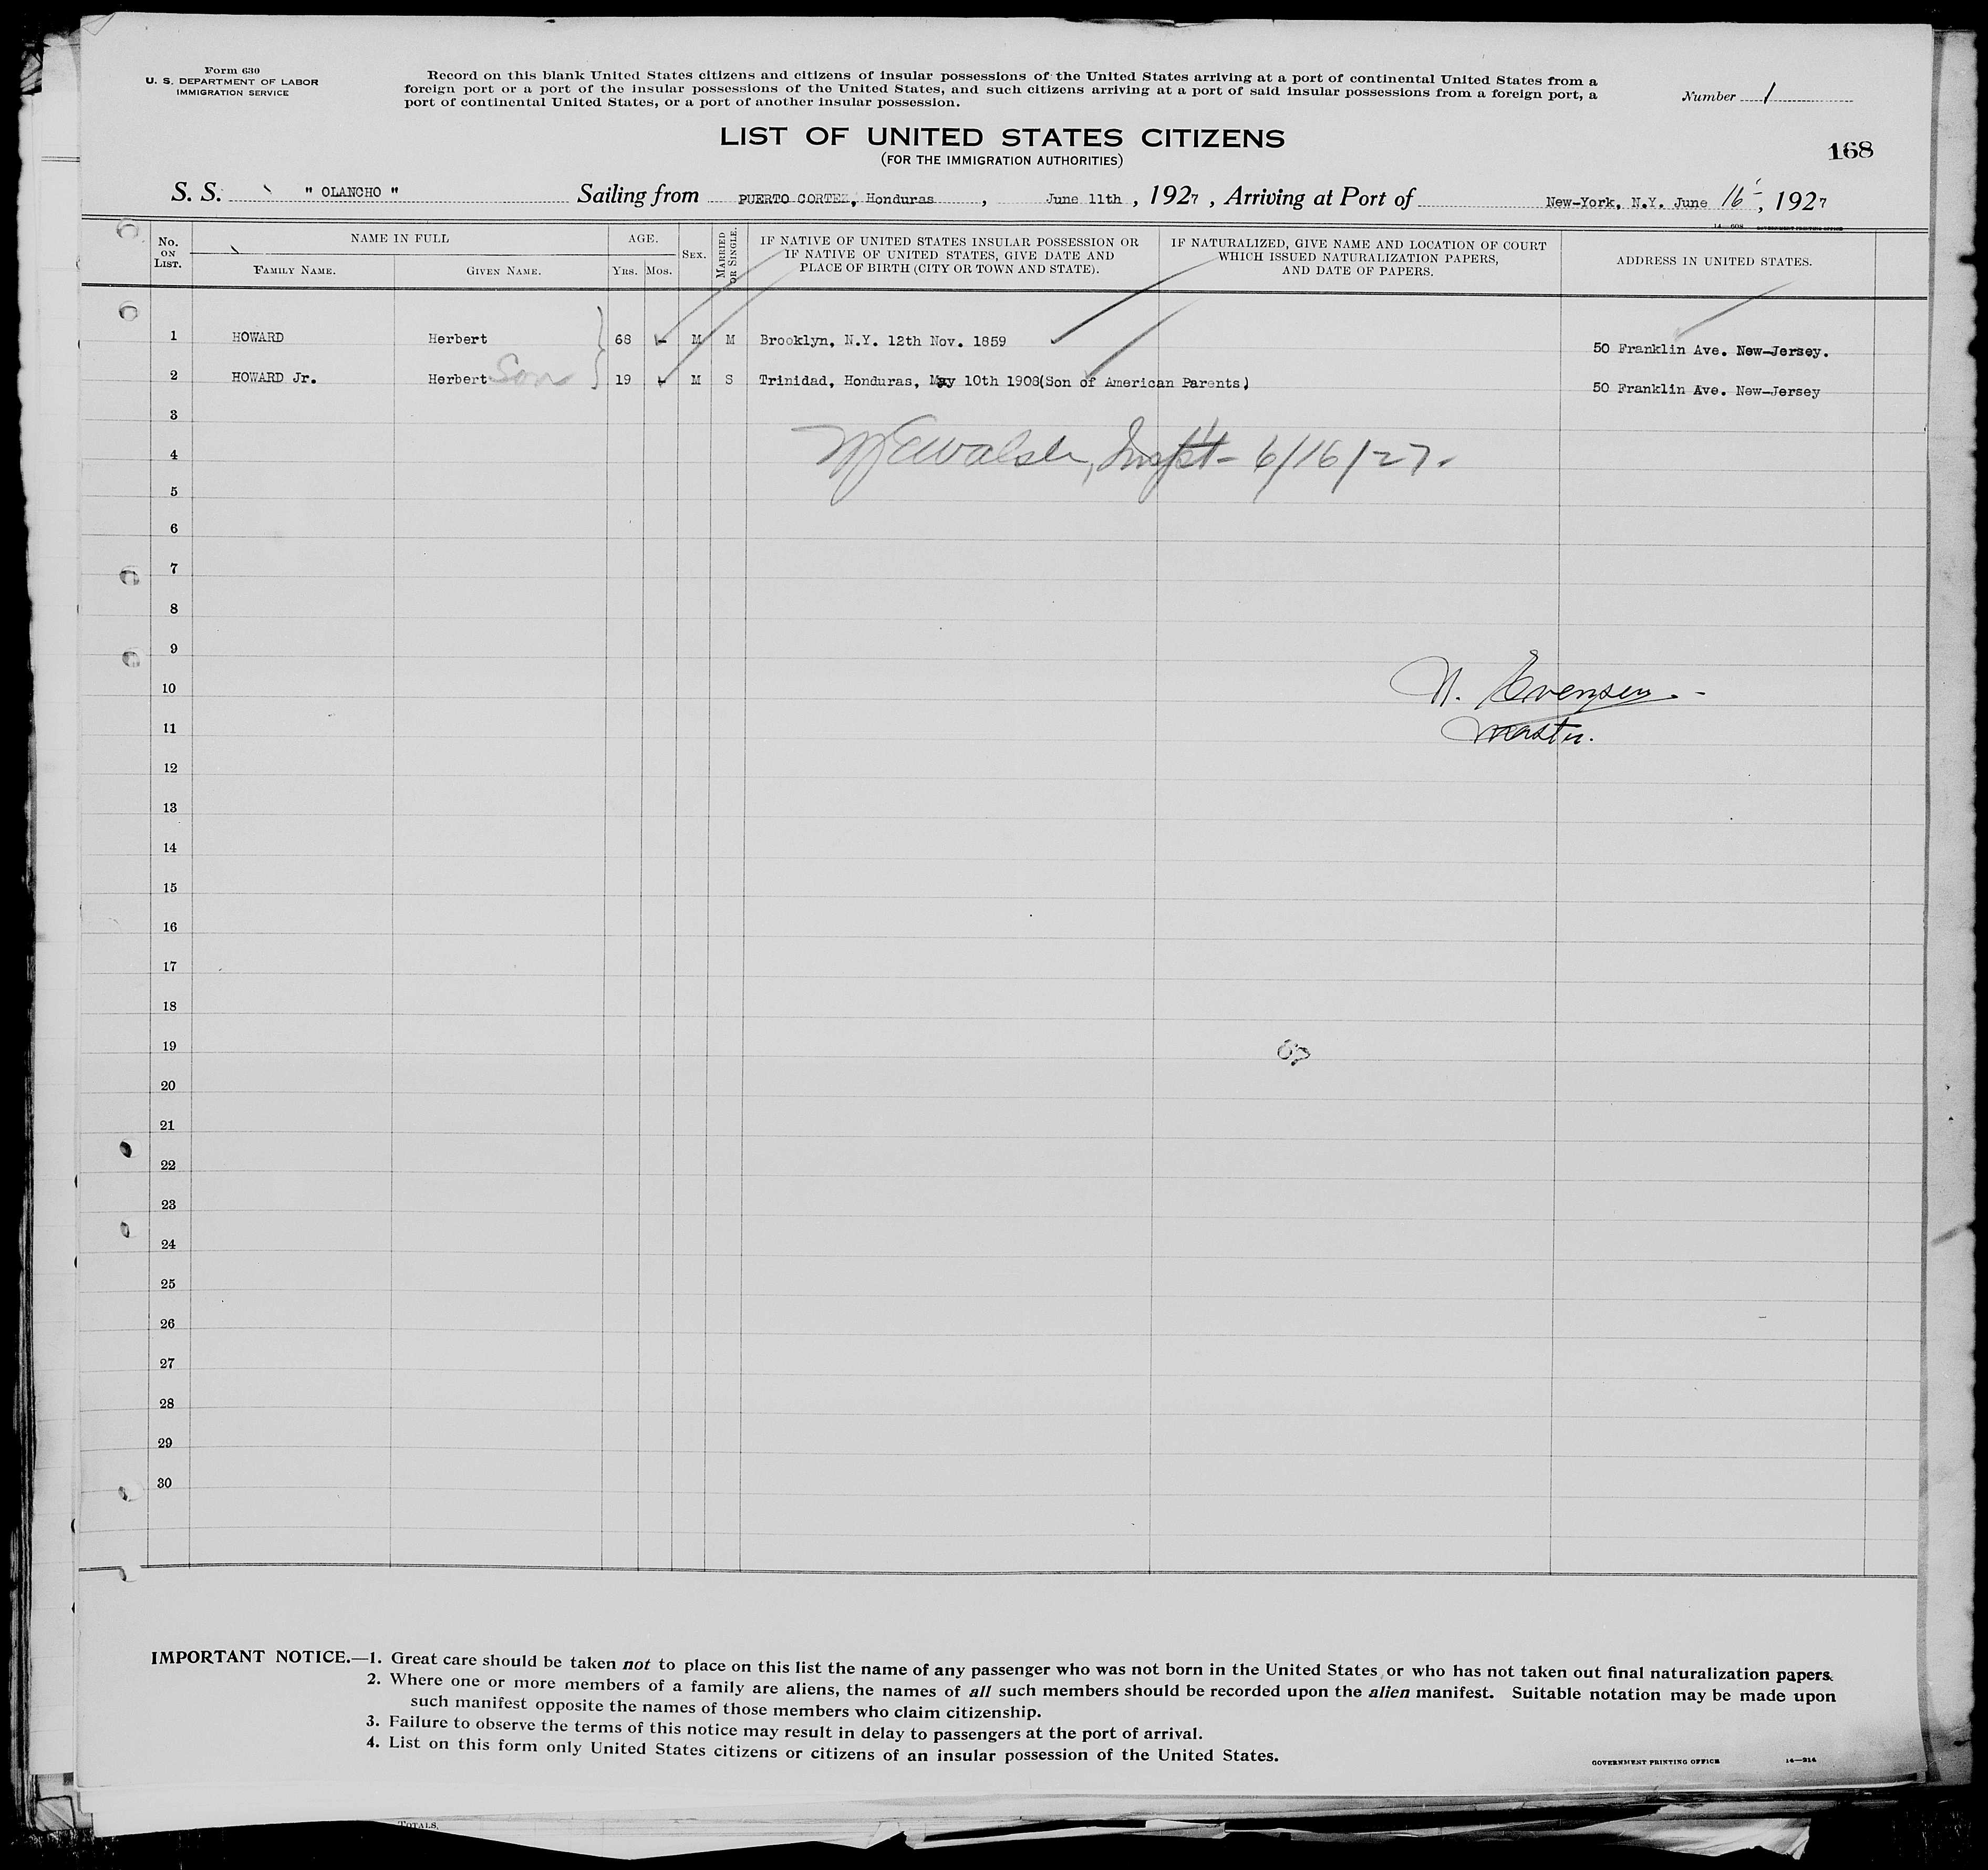 Form 630
U. S. DEPARTMENT OF LABOR
IMMIGRATION SERVICE
Record on this blank United States citizens and citizens of insular possessions of the United States arriving at a port of continental United States from a
foreign port or a port of the insular possessions of the United States, and such citizens arriving at a port of said insular possessions from a foreign port, a
port of continental United States, or a port of another insular possession.
Number 1
LIST OF UNITED STATES CITIZENS
(FOR THE IMMIGRATION AUTHORITIES)
168
S. S. " OLANCHO " Sailing from PUERTO CORTEZ, Honduras , June 11th , 1927 , Arriving at Port of New-York, N.Y. June 16 , 1927
No. ON LIST.
NAME IN FULL
FAMILY NAME.
GIVEN NAME.
AGE.
YRS.
MOS.
SEX.
MARRIED OR SINGLE.
IF NATIVE OF UNITED STATES INSULAR POSSESSION OR
IF NATIVE OF UNITED STATES, GIVE DATE AND
PLACE OF BIRTH (CITY OR TOWN AND STATE).
IF NATURALIZED, GIVE NAME AND LOCATION OF COURT
WHICH ISSUED NATURALIZATION PAPERS,
AND DATE OF PAPERS.
ADDRESS IN UNITED STATES.
1 HOWARD Herbert 68 - M M Brooklyn, N.Y. 12th Nov. 1859 50 Franklin Ave. New-Jersey.
2 HOWARD Jr. Herbert Son 19 - M S Trinidad, Honduras, May 10th 1908(Son of American Parents) 50 Franklin Ave. New-Jersey
3
4
Walsh, Inspt- 6/16/27.
5
6
7
8
9
10
N. Evensen.-
11
Master.
12
13
14
15
16
17
18
19
20
21
22
23
24
25
26
27
28
29
30
IMPORTANT NOTICE.—1. Great care should be taken not to place on this list the name of any passenger who was not born in the United States or who has not taken out final naturalization papers.
2. Where one or more members of a family are aliens, the names of all such members should be recorded upon the alien manifest. Suitable notation may be made upon
such manifest opposite the names of those members who claim citizenship.
3. Failure to observe the terms of this notice may result in delay to passengers at the port of arrival.
4. List on this form only United States citizens or citizens of an insular possession of the United States.
GOVERNMENT PRINTING OFFICE 14—214
TOTALS.